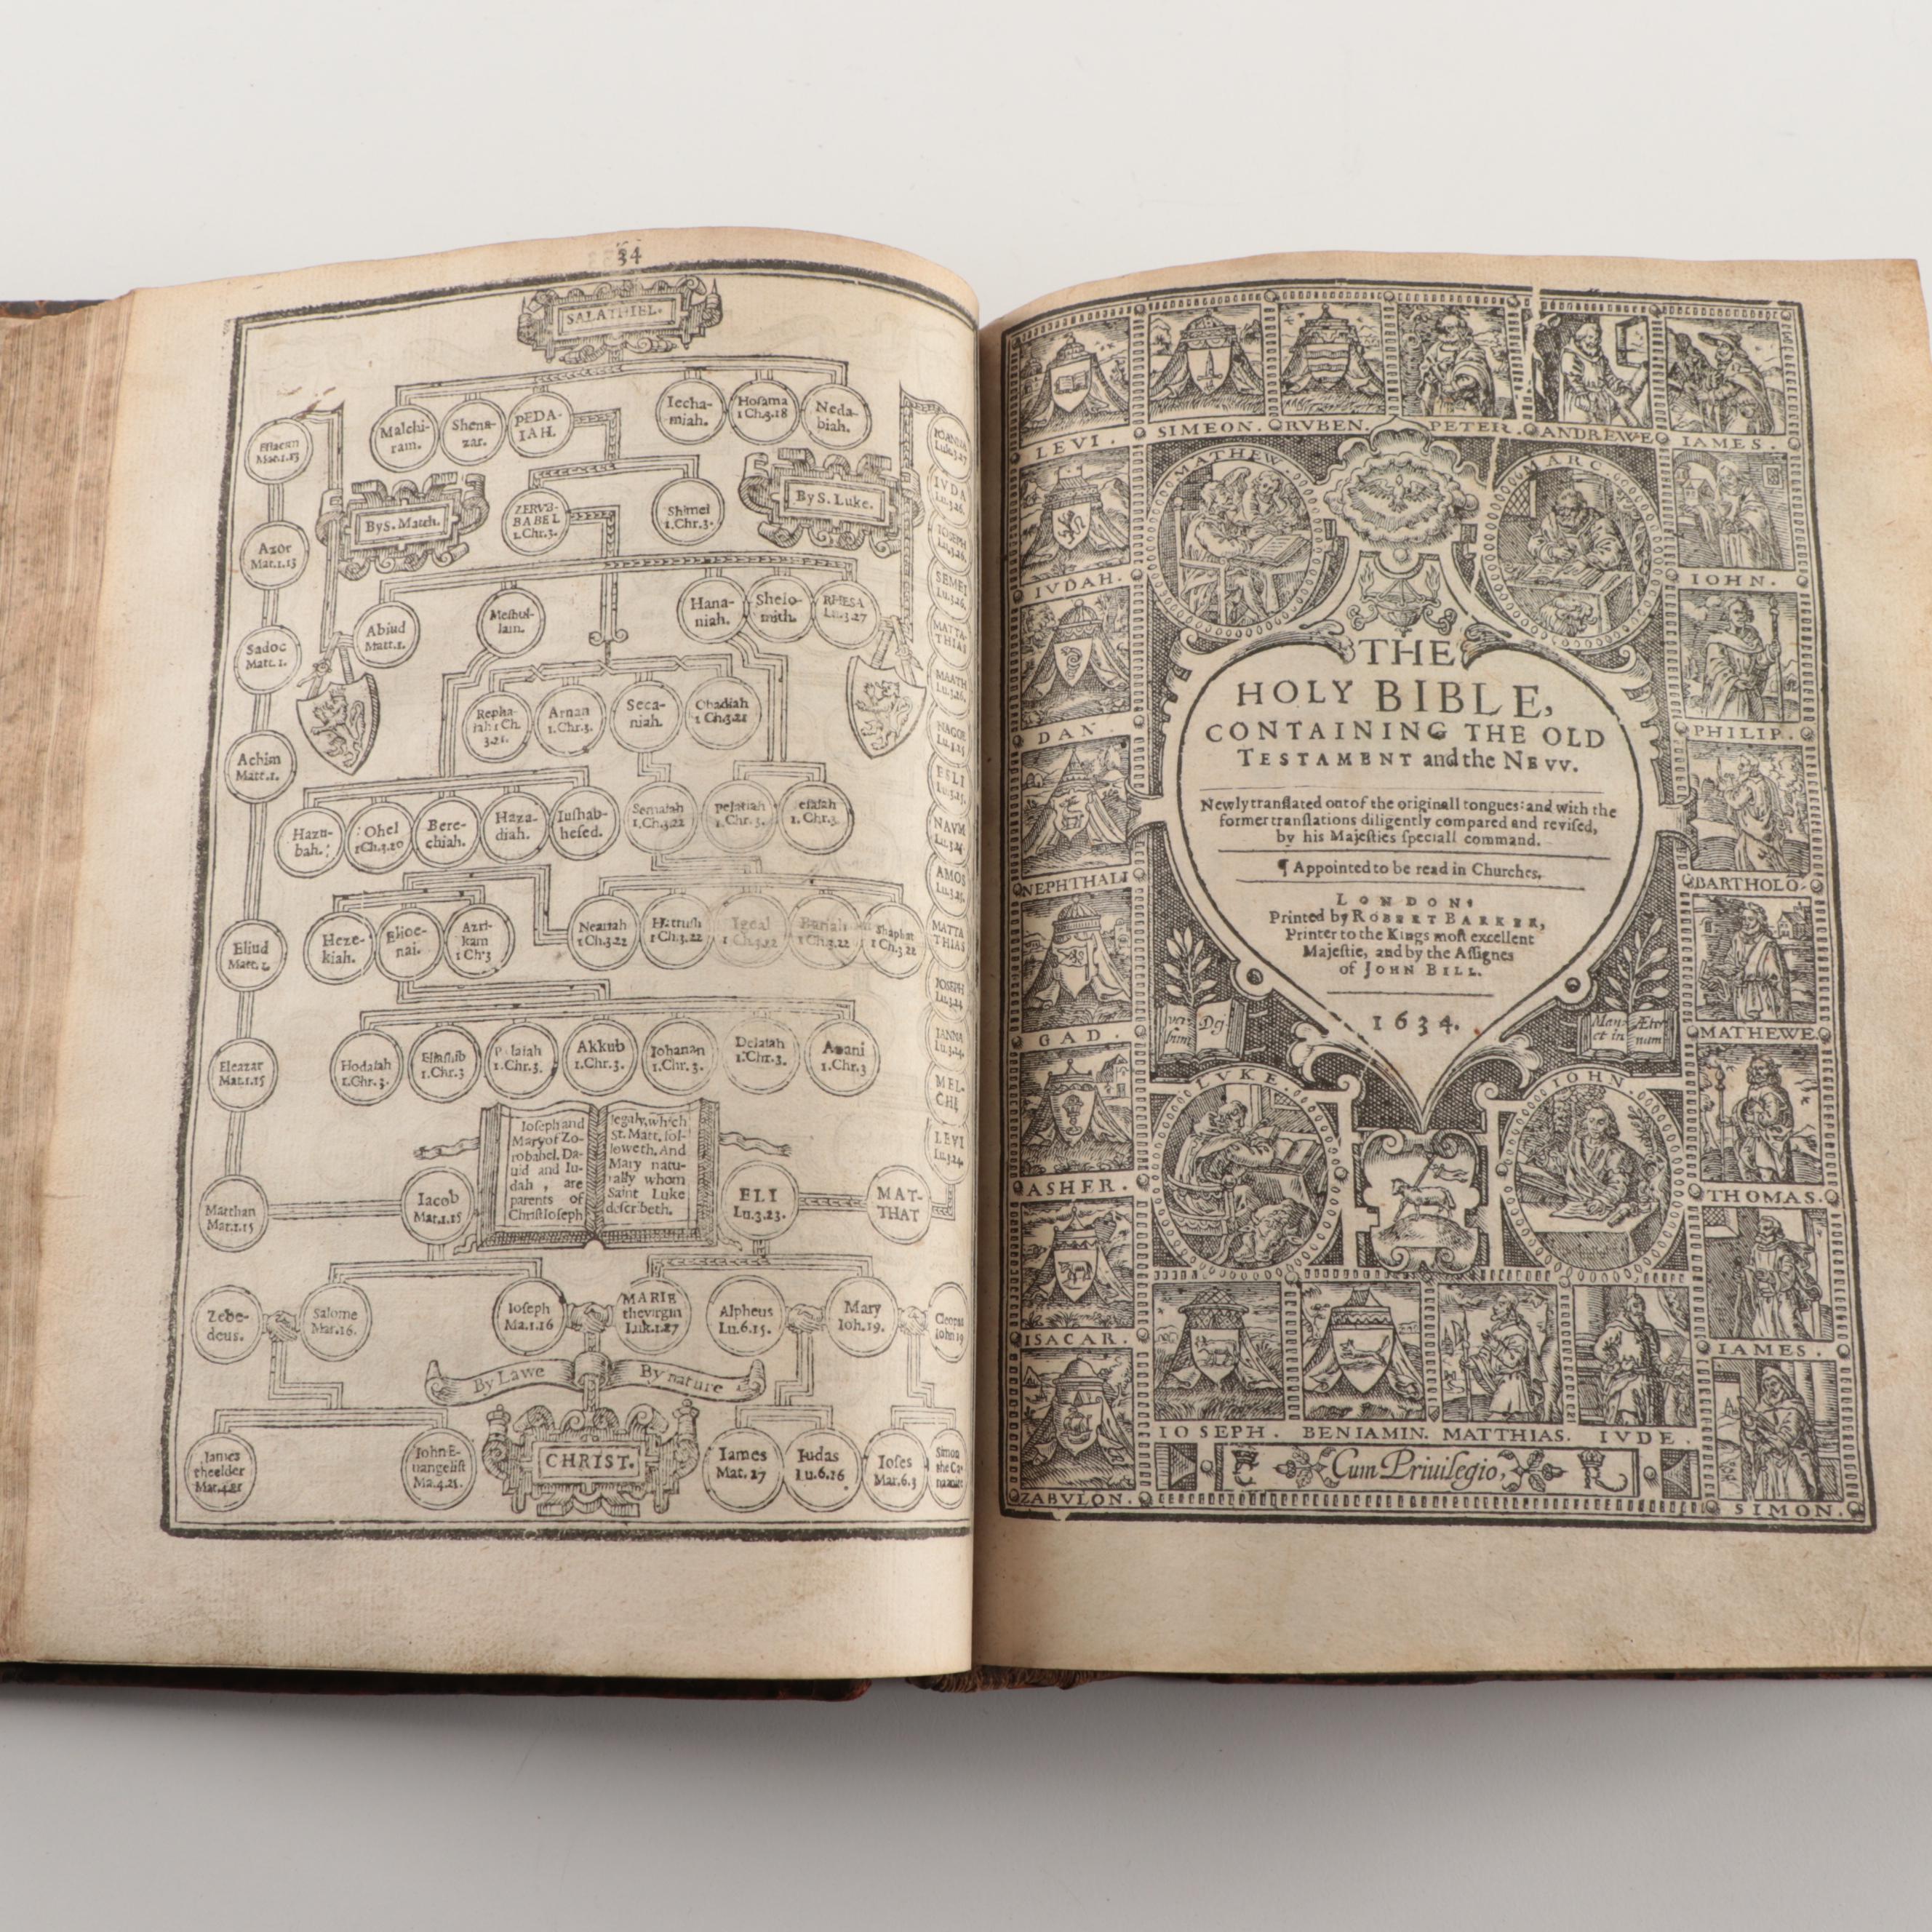 34
SALATHIEL.
Malchi-
ram.
Shena-
zar.
PEDA-
IAH.
Iecha-
miah.
Hosama
1 Ch.3.18
Neda-
biah.
Mat.1.13
By S. Matth.
ZERVB-
BABEL
1.Chr.3.
Shimei
1.Chr.3.
By S. Luke.
Azor
Mat.1.13
Abiud
Matt.1.
Meshul-
lam.
Hana-
niah.
Shelo-
mith.
RHESA
Lu.3.27
Sadoc
Matt. 1.
Repha-
iah 1 Ch.
3.21.
Arnan
1.Chr.3.
Seca-
niah.
Obadiah
1 Ch.3.21
Achim
Matt.1.
Hazu-
bah.
Ohel
1Ch.3.20
Bere-
chiah.
Haza-
diah.
Iushab-
hesed.
Semaiah
1.Ch.3.22
Pelatiah
1.Chr.3.
esaiah
1. Chr.3.
Eliud
Matt.1.
Heze-
kiah.
Elioe-
nai.
Azri-
kam
1 Ch'3
Neariah
1 Ch.3.22
Hattush
1 Ch.3.22
Igeal
1 Ch.3.22
Bariah
1 Ch.3.22
Shaphat
1 Ch.3 22
Eleazar
Mat.1.15
Hodaiah
1.Chr.3.
Eliashib
1.Chr.3
Pelaiah
1.Chr.3.
Akkub
1.Chr.3.
Iohanan
1.Chr.3.
Delaiah
1.Chr.3.
Anani
1.Chr.3
IVDA
Lu.3.26.
IOSEPH
Lu.3.26.
SEMEI
Lu.3.26.
MATTA-
THIAS
MAATH
Lu.3.26.
NAGGE
Lu.3.25
ESLI
Lu.3.25.
NAVM
Lu.3.25
AMOS
Lu.3.25.
MATTA
THIAS
IOSEPH
Lu.3.24
IANNA
Lu.3.24.
MEL-
CHI
LEVI
Lu.3.24.
Matthan
Mat.1.15
Iacob
Mat.1.15
Ioseph and
Mary of Zo-
robabel, Da-
uid and Iu-
dah , are
parents of
Christ Ioseph
legally, which
St. Matt. fol-
loweth. And
Mary natu-
rally whom
Saint Luke
describeth.
ELI
Lu.3.23.
MAT-
THAT
Zebe-
deus.
Salome
Mar.16.
Ioseph
Ma.1.16
MARIE
the virgin
Luk.1.27
Alpheus
Lu.6.15.
Mary
Ioh.19.
Cleopas
Iohn 19
By Lawe
By nature
Iames
the elder
Mat.4.21
Iohn E-
uangelist
Ma.4.21.
CHRIST.
Iames
Mat. 27
Iudas
Lu.6.16
Ioses
Mar.6.3
Simon
the Ca-
nanite
LEVI.
SIMEON.
RVBEN.
PETER.
ANDREWE
IAMES.
MATHEW.
MARC.
IVDAH.
IOHN.
DAN.
PHILIP.
NEPHTHALI
BARTHOLO-
GAD.
MATHEWE
ASHER.
THOMAS.
ISACAR.
IAMES.
ZABVLON.
SIMON.
THE
HOLY BIBLE,
CONTAINING THE OLD
TESTAMENT and the NEVV.
Newly translated out of the originall tongues: and with the
former translations diligently compared and revised,
by his Majesties speciall command.
¶ Appointed to be read in Churches.
LONDON:
Printed by ROBERT BARKER,
Printer to the Kings most excellent
Majestie, and by the Assignes
of JOHN BILL.
1634.
ver-
bum
Dej
Mane
et in
Æter
num
LVKE.
IOHN.
IOSEPH.
BENIAMIN.
MATTHIAS.
IVDE.
C
Cum Priuilegio,
R